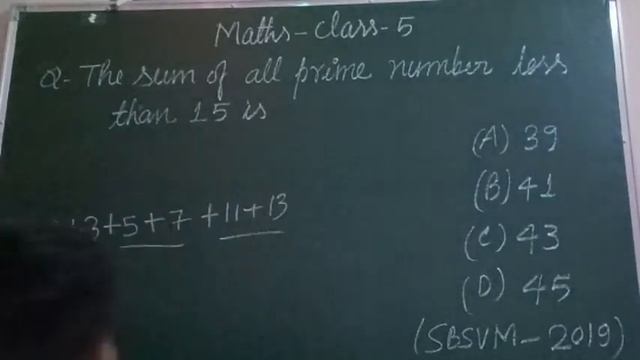 Maths-Class-5
Q- The sum of all prime number less
than 15 is
(A) 39
(B) 41
3+5+7 +11+13
(C) 43
(D) 45
(SBSVM-2019)